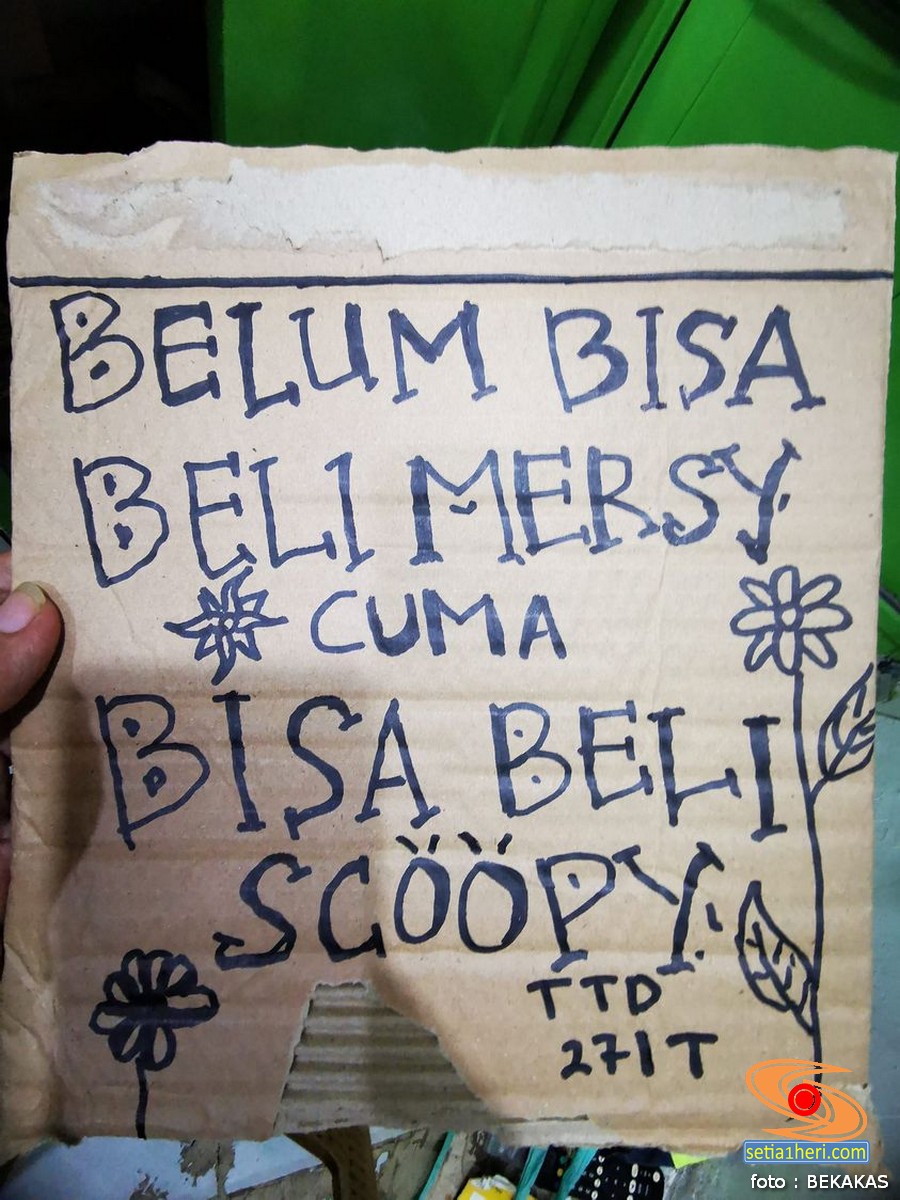 BELUM BISA
BELI MERSY
CUMA
BISA BELI
SCÖÖPY
TTD
271T
setia1heri.com
foto : BEKAKAS